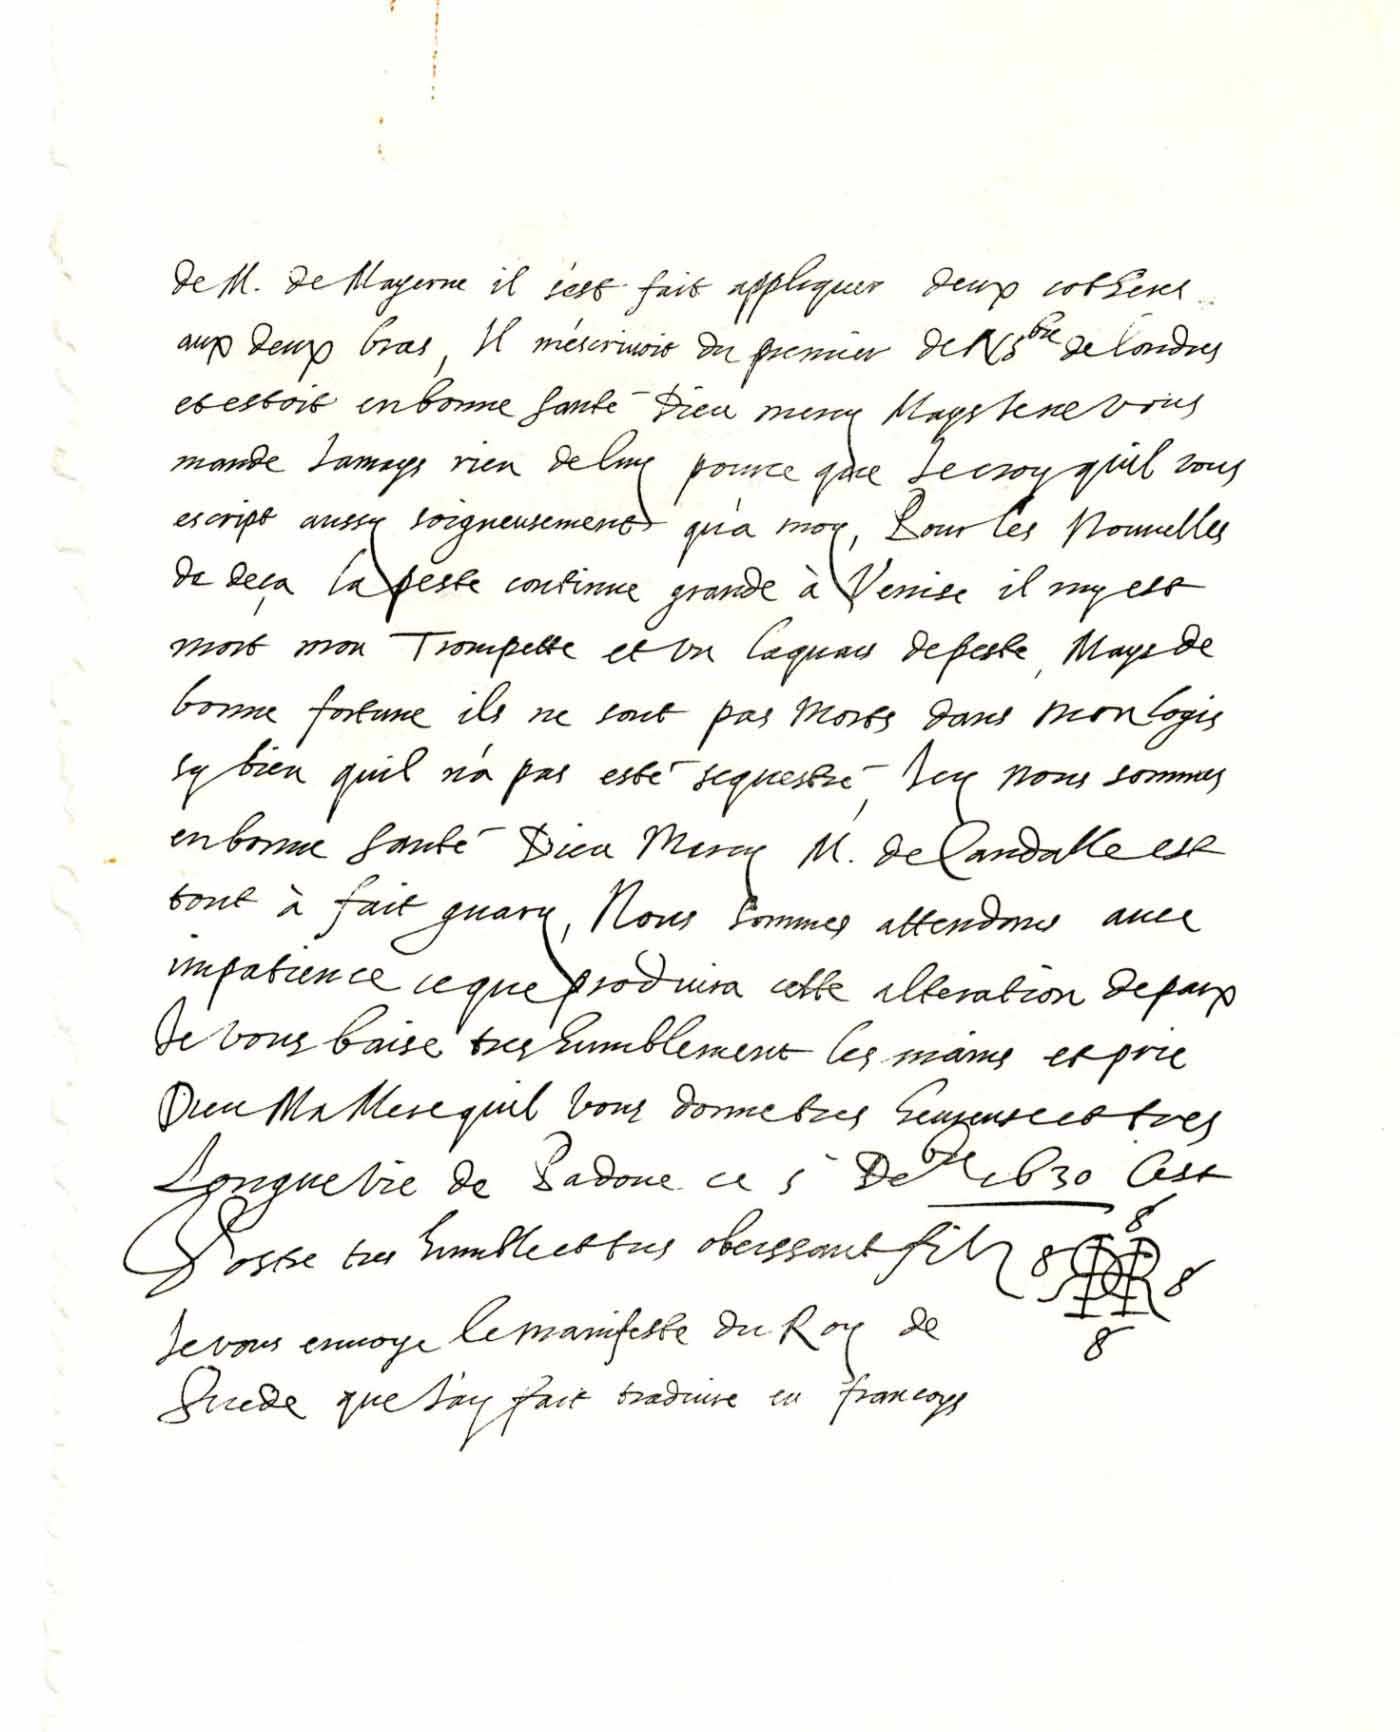 de M. de Mayerne il s'est fait appliquer deux cotheres
aux deux bras, Il m'escrivoit du premier de 9bre de Londres
et estoit en bonne santé Dieu mercy Mays Je ne vous
mande Jamays rien de luy pource que Je croy quil vous
escript aussy soigneusement qu'a moy, Pour les Nouvelles
de deça la peste continue grande à Venise il my est
mort mon Trompette et un laquais de peste, Mays de
bonne fortune ils ne sont pas Morts dans mon logis
sy bien quil n'a pas esté sequestré, Icy nous sommes
en bonne santé Dieu Mercy M. de Candalle est
tout à fait guary, Nous sommes attendans avec
impatience ce que produira cette alteration de paix
Je vous baise tres humblement les mains et prie
Dieu Ma Mere quil vous donne tres heureuse et tres
Longue vie de Padoue ce 5 Debre 1630 C'est
Vostre tres humble et tres obeissant filz
Je vous envoye le manifeste du Roy de
Suede que J'ay fait traduire en francoys